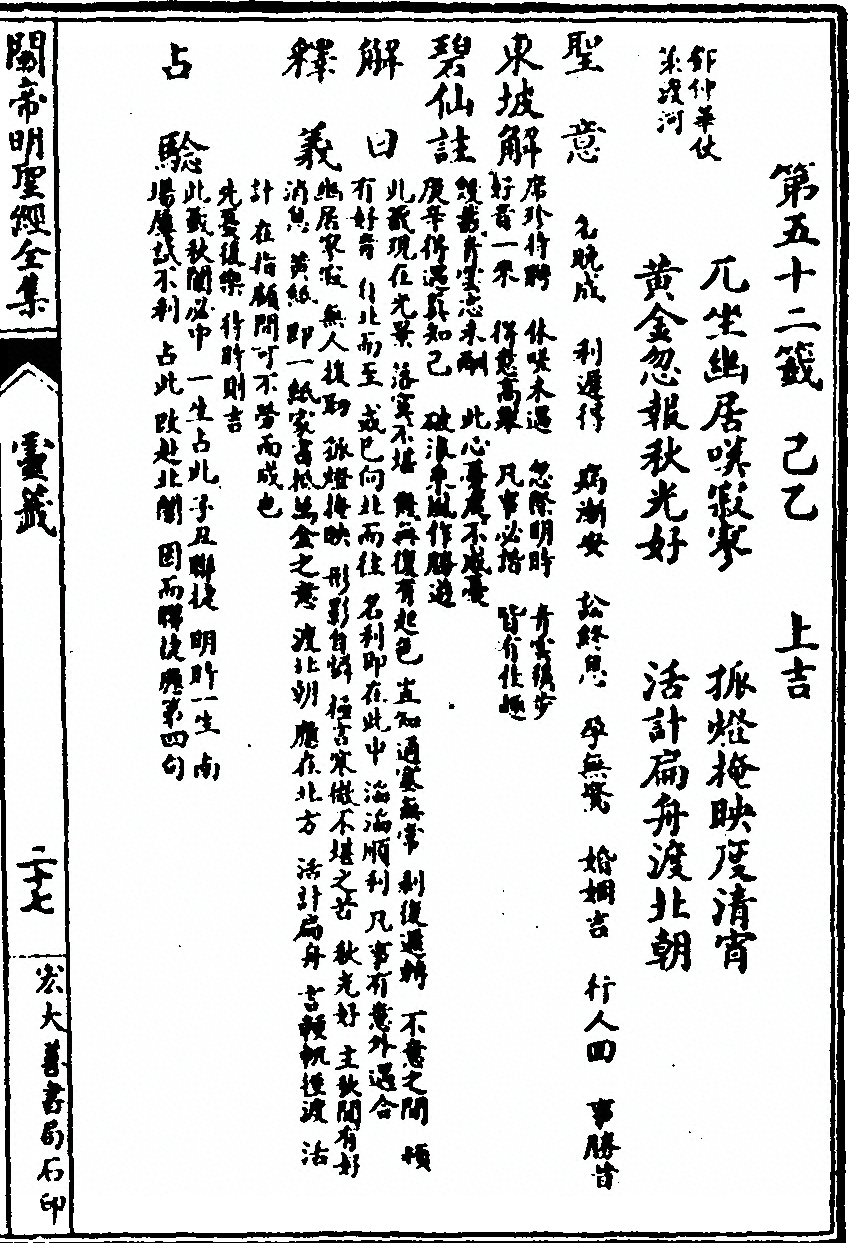 第五十二籤　己乙　上吉
兀坐幽居嘆寂寥　孤燈掩映度清宵
黃金忽報秋光好　活計扁舟渡北朝
鄧仲華仗
策渡河
聖意　名晚成　利遲得　病漸安　訟終息　孕無驚　婚姻吉　行人回　事勝昔
東坡解
席珍待聘　休嘆未遇　忽際明時　青雲穩步
好音一來　得慰高舉　凡事必諧　皆有佳趣
碧仙註
幾載青雲志未酬　此心憂慮不成憂
庚辛得遇真知己　破浪乘風作勝遊
解曰
此籤現在光景　落寞不堪　幾無復有起色　豈知通塞無常　剝復遞轉　不意之間　頓
有好音　自北而至　或已向北而往　名利即在此中　滔滔順利　凡事有意外遇合
釋義
幽居寂寥　無人援助　孤燈掩映　形影自憐　極言寒微不堪之苦　秋光好　主秋間有好
消息　黃紙　即一紙家書抵萬金之意　渡北朝　應在北方　活計扁舟　言輕帆徑渡　活
計　在指顧間可不勞而成也
先憂後樂　待時則吉
占驗
此籤秋闈必中　一生占此　子丑聯捷　明時一生　南
場屢試不利　占此　改赴北闈　因而聯捷　應第四句
關帝明聖經全集
靈籤
二十七
宏大善書局石印